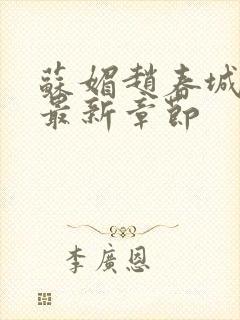 蘇媚趙春城
最新章節
李廣恩